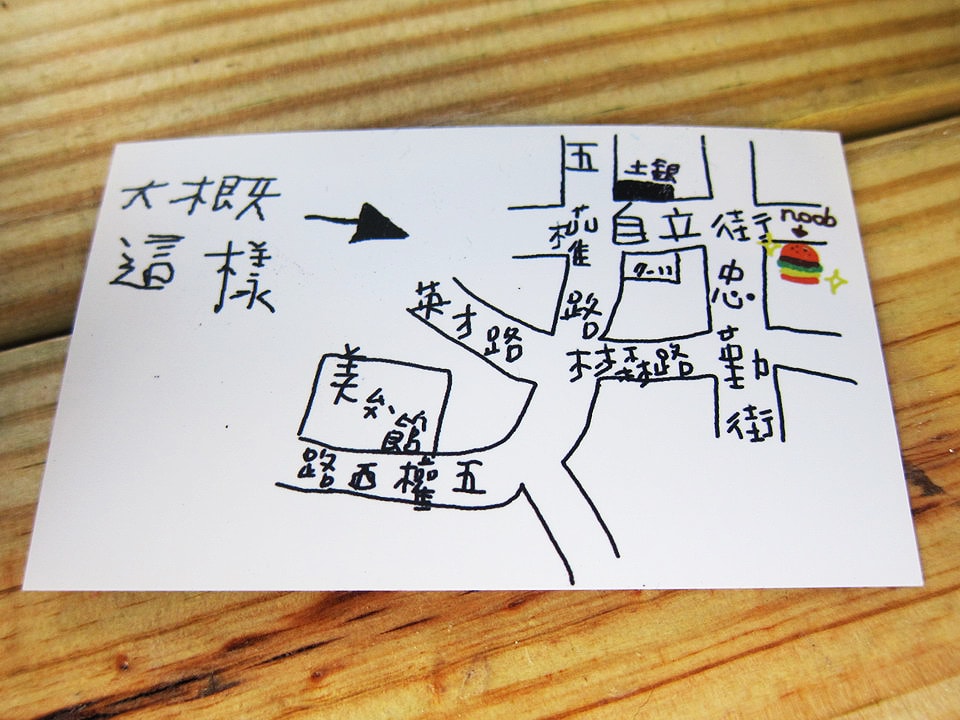 大概
這樣
五權路
土銀
自立街
noob
7-11
忠勤街
英才路
林森路
美術館
五權西路